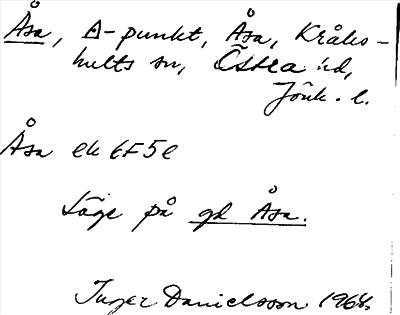 Åsa, A-punkt, Åsa, Kråks-
hults sn, Östra hd,
Jönk. l.
Åsa ek 6F5e
Läge på gd Åsa.
Inger Danielsson 1968.